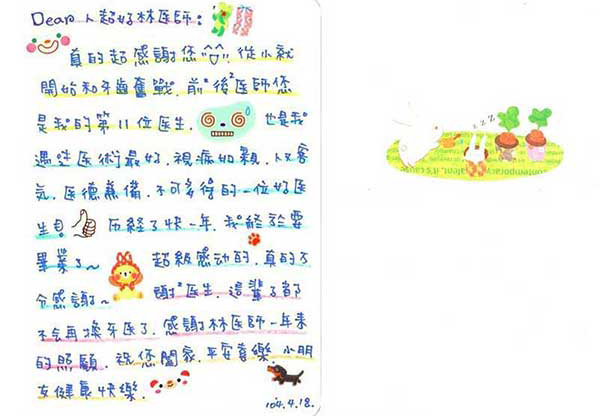 Dear 人超好林医師：
真的超感謝您"^^"!!，從小就
開始和牙齒奮戰，前前後後医師您
是我的第11位医生，也是我
遇过医術最好，視病如親，人又客
氣，医德兼備，不可多得的一位好医
生! 历經了快一年，我終於要
畢業了～超級感动的，真的十
分感謝～謝謝医生，這輩子都
不会再換牙医了，感謝林医師一年來
的照顧，祝您闔家，平安喜樂，小朋
友健康快樂。
104.4.18.
zzz
contemporary
talent, it's cause